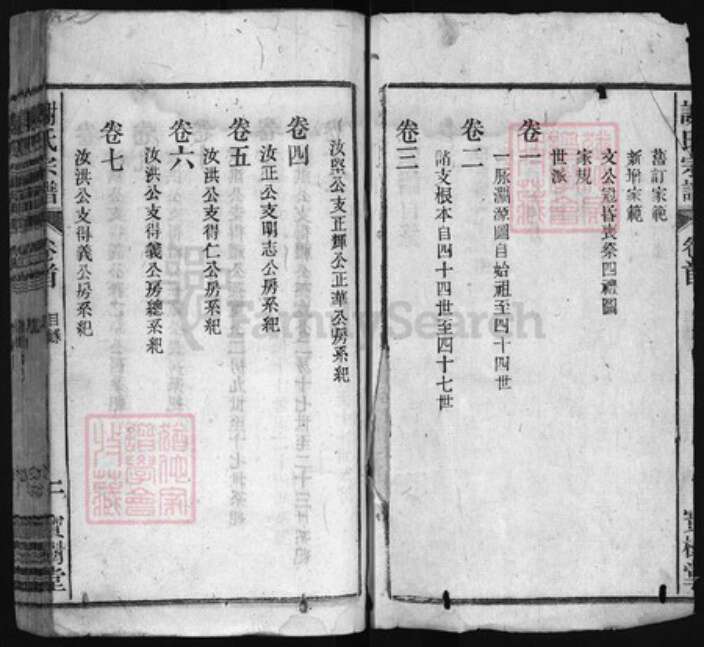 謝氏宗譜
卷首
寶樹堂
舊訂家範
新增家範
文公冠昏喪祭四禮圖
家規
世派
卷一
一脉淵源圖自始祖至四十四世
卷二
諸支根本自四十四世至四十七世
卷三
汝堅公支正輝公正華公房系紀
卷四
汝正公支明志公房系紀
卷五
汝洪公支得仁公房系紀
卷六
汝洪公支得義公房總系紀
卷七
汝洪公支得義公房系紀
謝氏宗譜
卷首
目錄
二
寶樹堂
FamilySearch